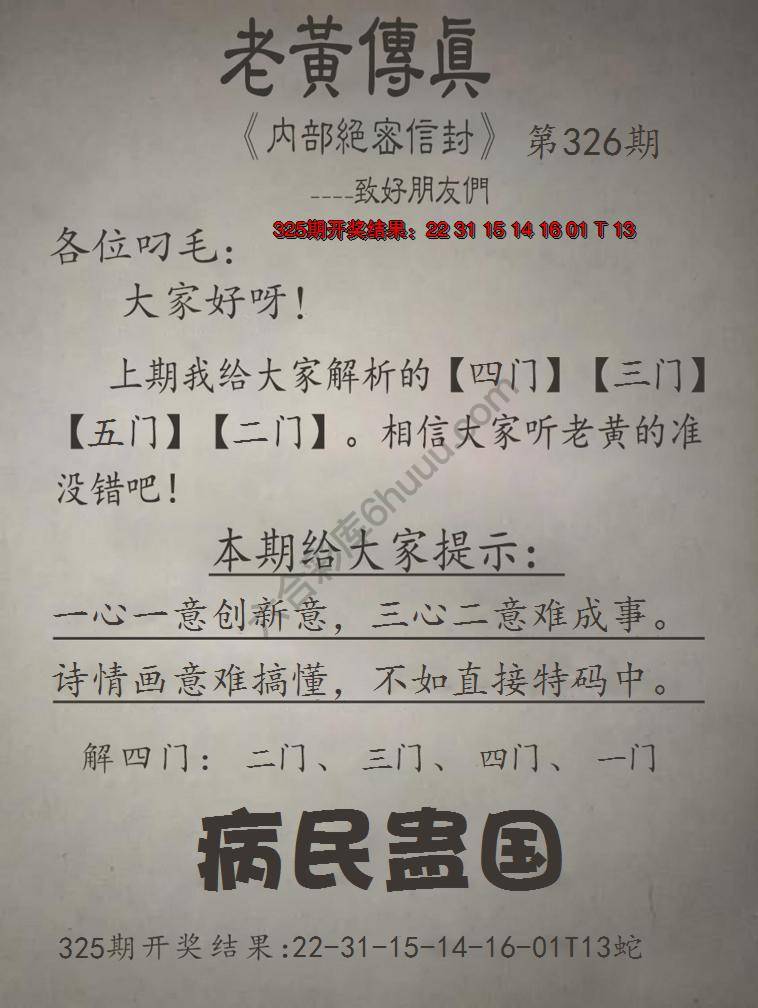 老黃傳眞
《内部絕密信封》 第326期
----致好朋友們
325期开奖结果：22 31 15 14 16 01 T 13
各位叼毛：
大家好呀！
上期我给大家解析的【四门】【三门】
【五门】【二门】。相信大家听老黄的准
没错吧！
本期给大家提示：
一心一意创新意，三心二意难成事。
诗情画意难搞懂，不如直接特码中。
解四门： 二门、 三门、 四门、 一门
病民蛊国
325期开奖结果:22-31-15-14-16-01T13蛇
六合彩库6huuu.com